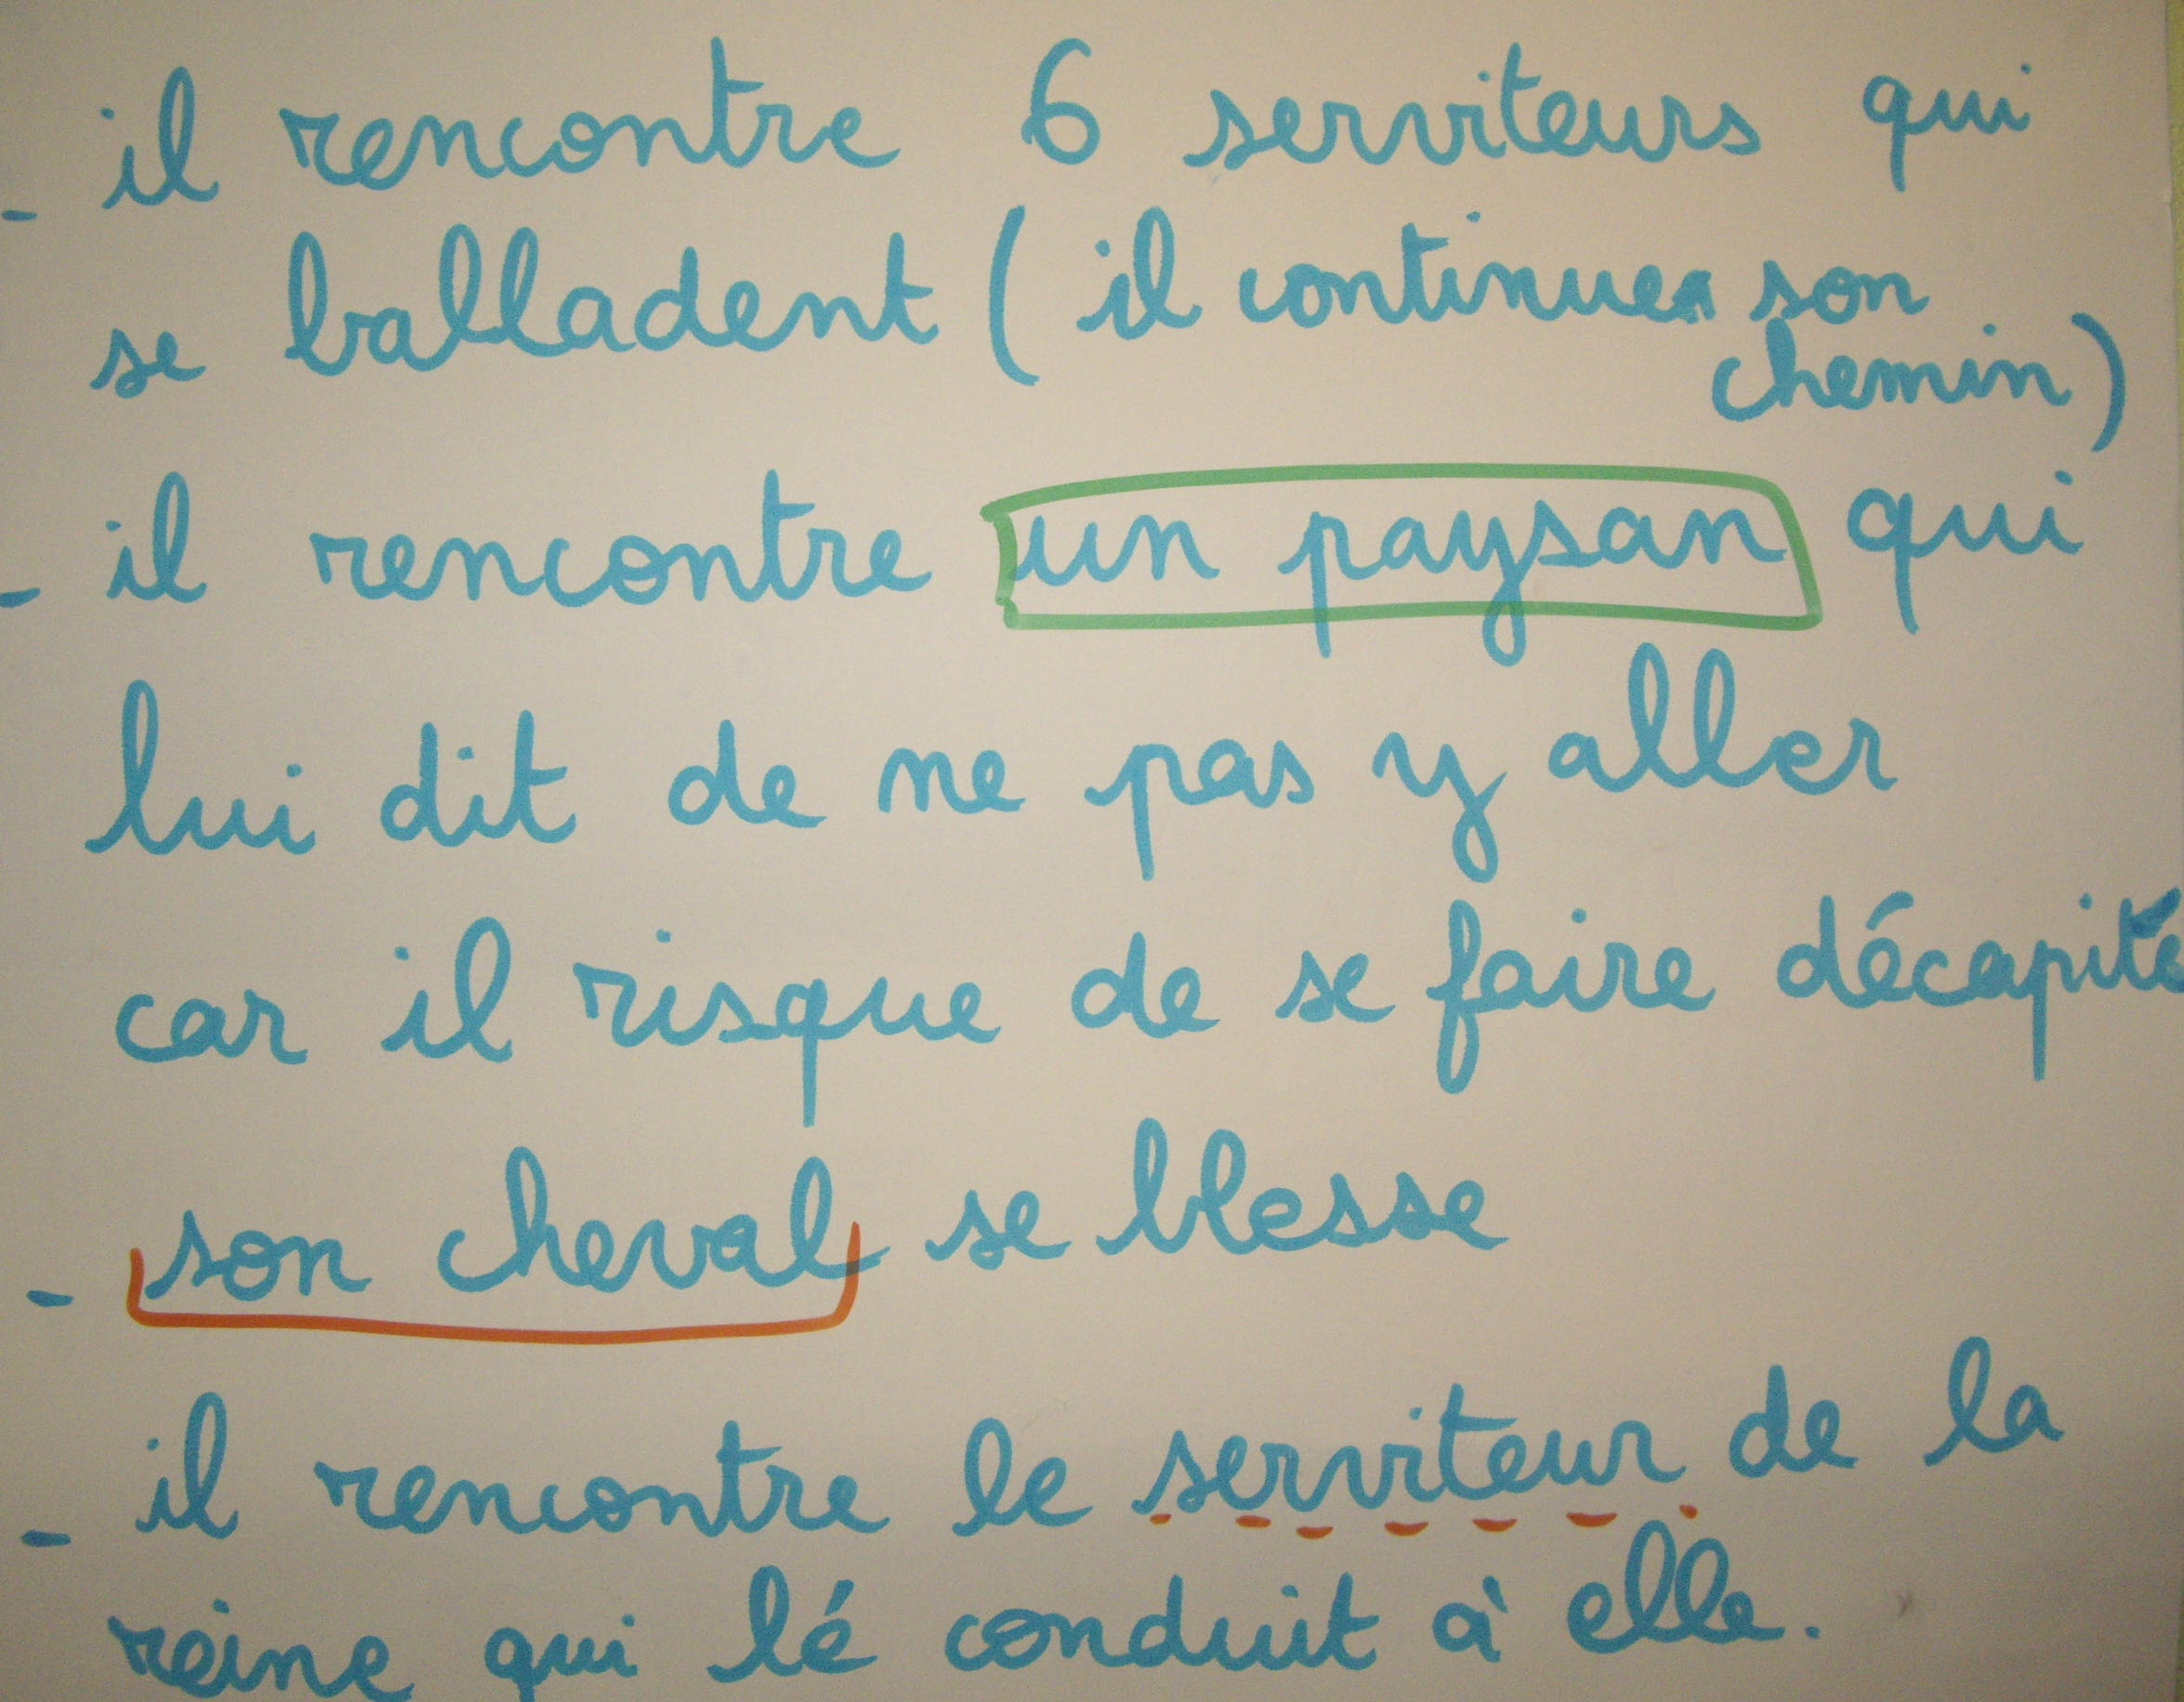 - il rencontre 6 serviteurs qui
se balladent ( il continue son
chemin)
- il rencontre un paysan qui
lui dit de ne pas y aller
car il risque de se faire décapité
- son cheval se blesse
- il rencontre le serviteur de la
reine qui lé conduit à elle.